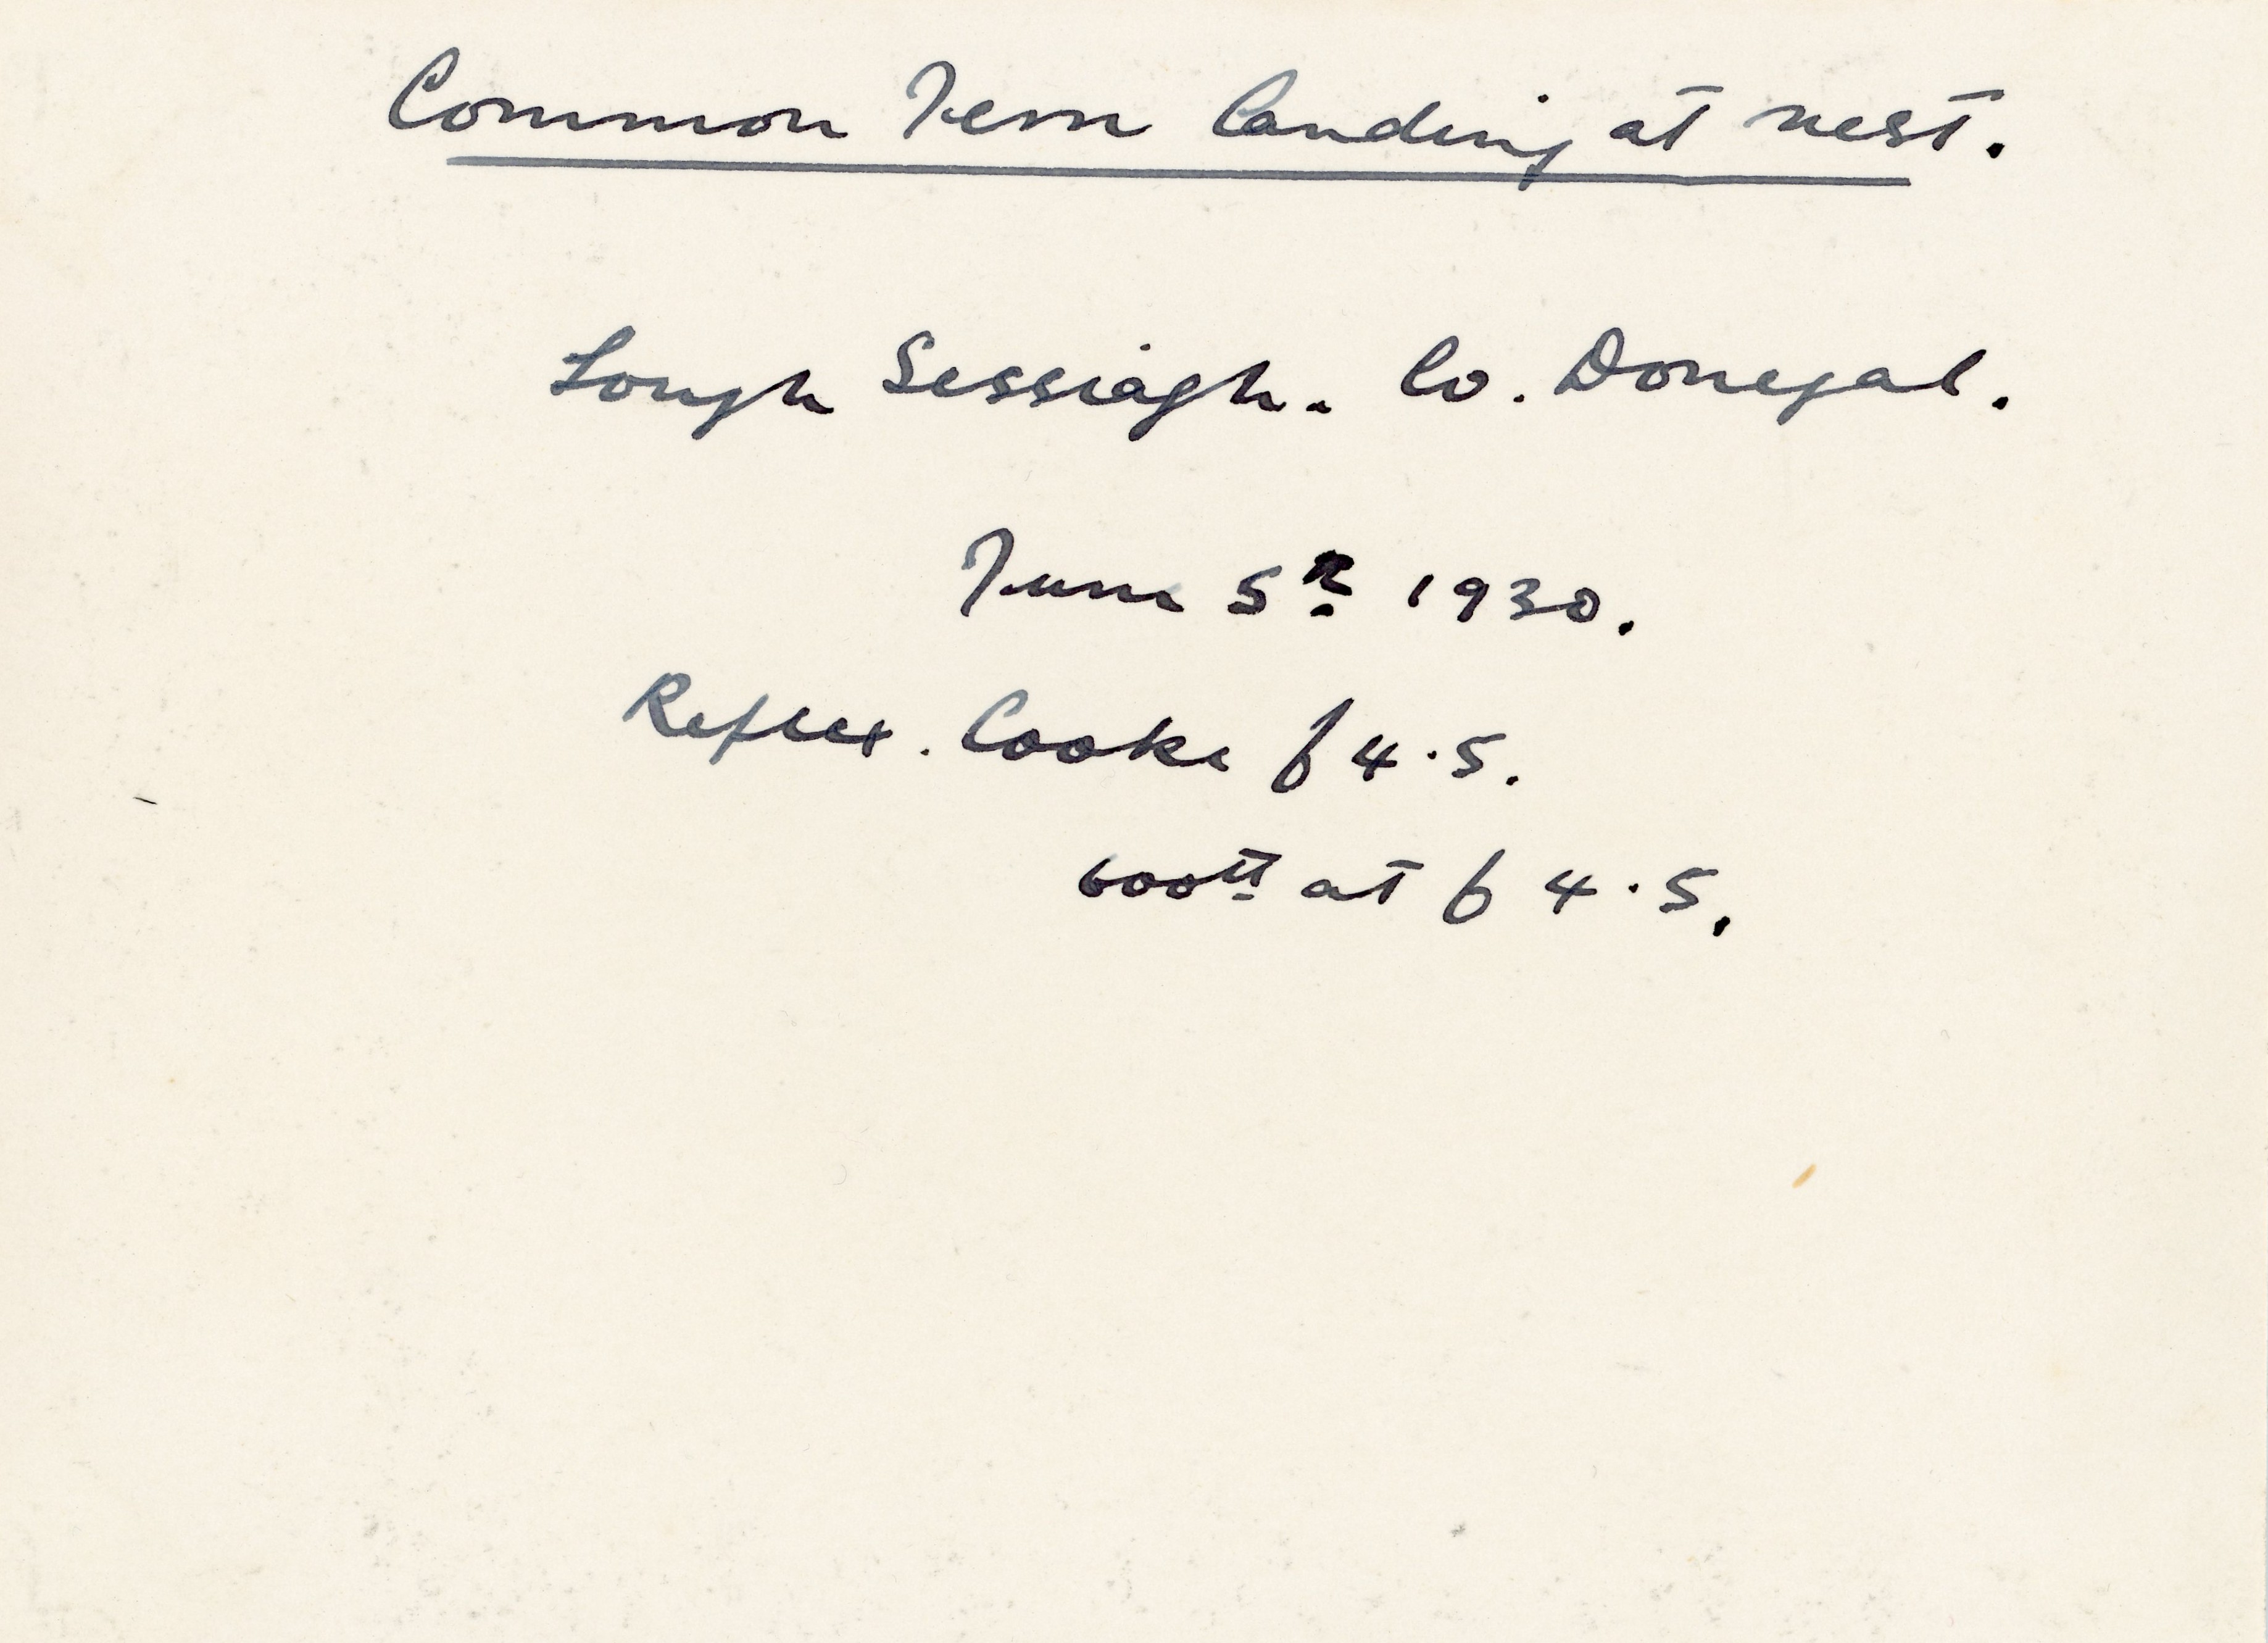 Common Tern landing at nest.
Lough Sessiagh. Co. Donegal.
June 5th 1930.
Reflex. Cooke f 4.5.
600th at f 4.5.